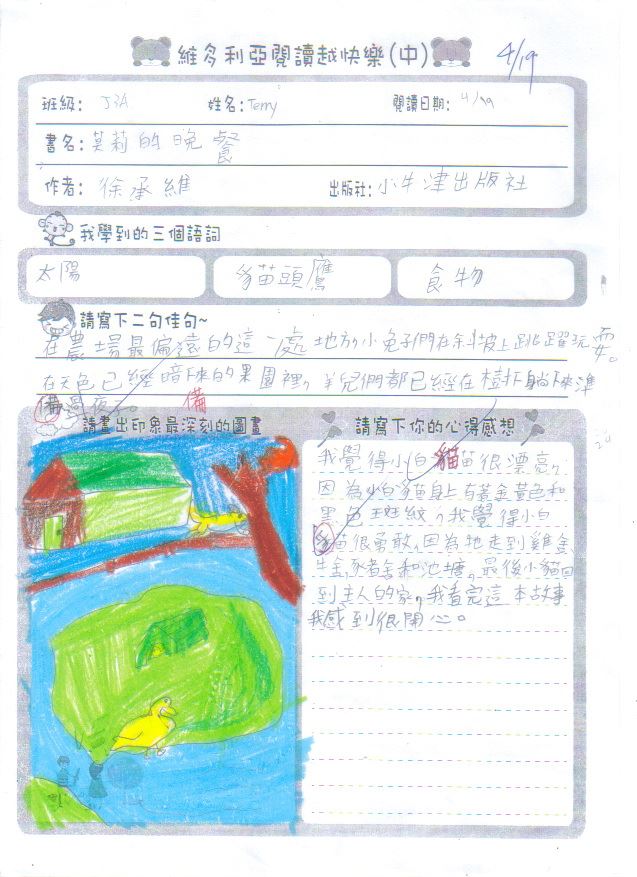 維多利亞閱讀越快樂(中)
4/19
班級: J3A 姓名: Terry 閱讀日期: 4/19
書名: 莫莉的晚餐
作者: 徐承維 出版社: 小牛津出版社
我學到的三個語詞
太陽 貓頭鷹 食物
請寫下二句佳句~
在農場最偏遠的這一處地方,小兔子們在斜坡上跳躍玩耍。
在天色已經暗下來的果園裡,羊兒們都已經在樹下躺下來準
備過夜了。
備
請畫出印象最深刻的圖畫
請寫下你的心得感想
我覺得小白貓很漂亮,
因為小白貓身上有黃金黃色和
黑色斑紋,我覺得小白
貓很勇敢,因為牠走到雞舍、
牛舍、豬舍和池塘。最後小貓回
到主人的家,我看完這本故事
我感到很開心。